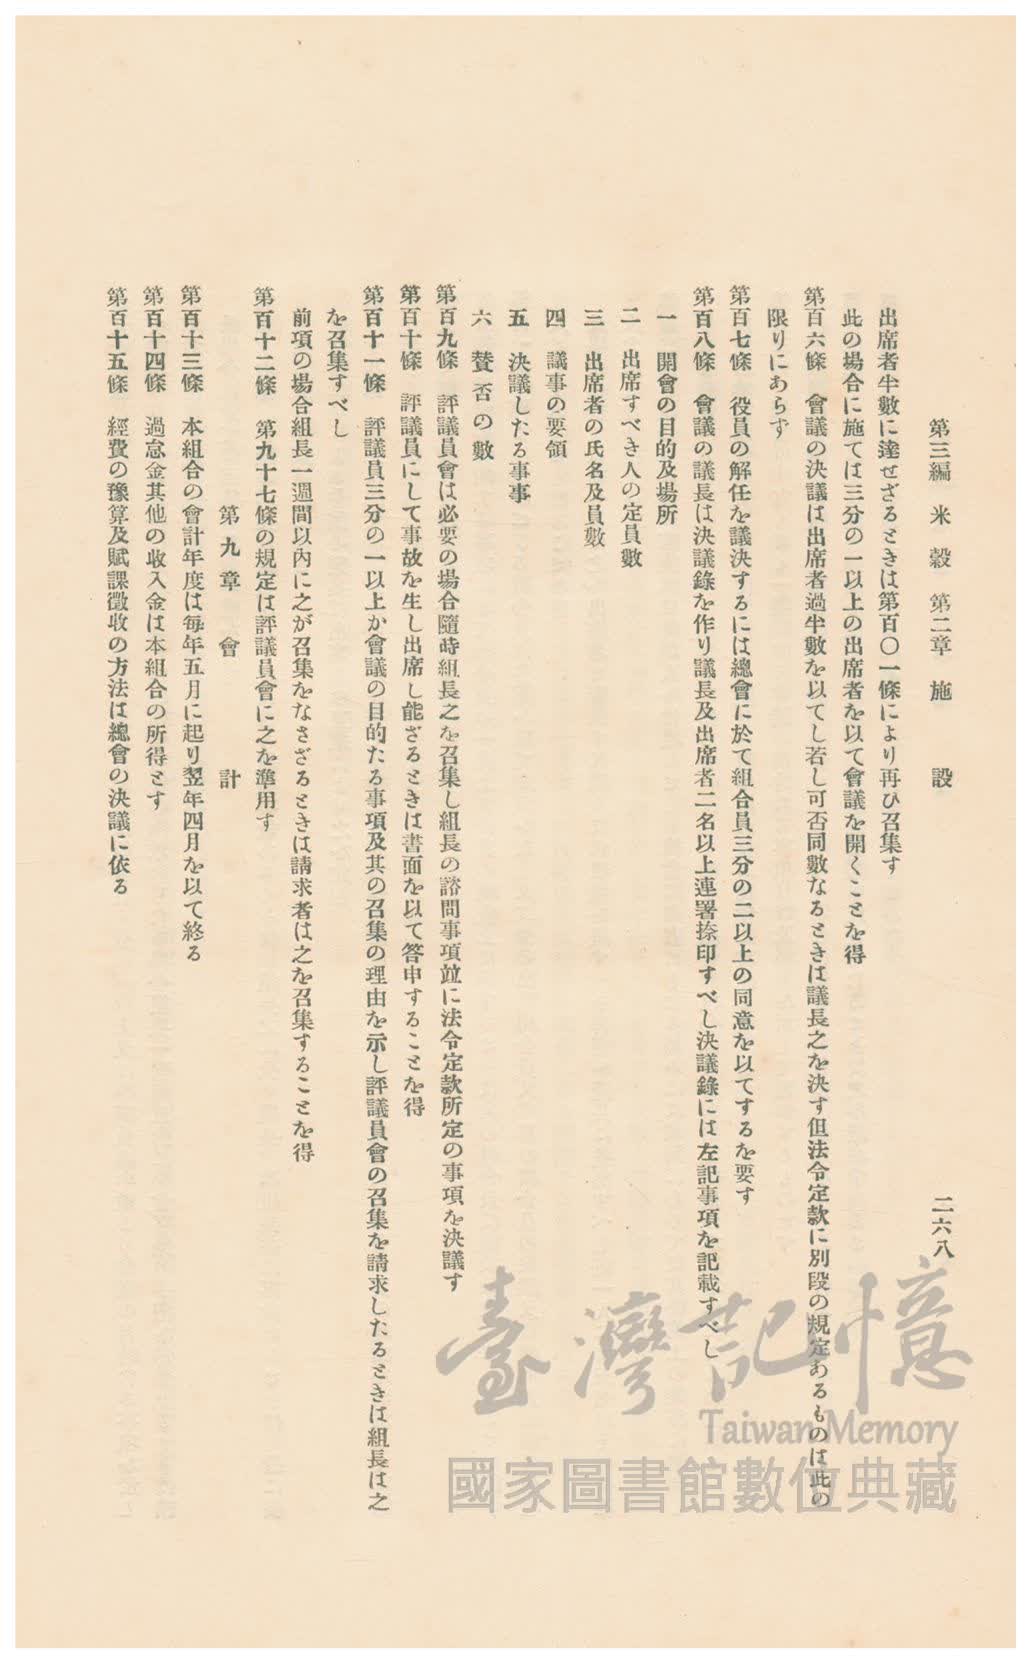 第三編 米穀 第二章 施設 二六八
出席者半數に達せざるときは第百〇一條により再び召集す
此の場合に施ては三分の一以上の出席者を以て會議を開くことを得
第百六條 會議の決議は出席者過半數を以てし若し可否同數なるときは議長之を決す但法令定款に別段の規定あるものは此の
限りにあらず
第百七條 役員の解任を議決するには總會に於て組合員三分の二以上の同意を以てするを要す
第百八條 會議の議長は決議錄を作り議長及出席者二名以上連署捺印すべし決議錄には左記事項を記載すべし
一 開會の目的及場所
二 出席すべき人の定員數
三 出席者の氏名及員數
四 議事の要領
五 決議したる事事
六 賛否の數
第百九條 評議員會は必要の場合隨時組長之を召集し組長の諮問事項竝に法令定款所定の事項を決議す
第百十條 評議員にして事故を生し出席し能ざるときは書面を以て答申することを得
第百十一條 評議員三分の一以上か會議の目的たる事項及其の召集の理由を示し評議員會の召集を請求したるときは組長は之
を召集すべし
前項の場合組長一週間以內に之が召集をなさざるときは請求者は之を召集することを得
第百十二條 第九十七條の規定は評議員會に之を準用す
第九章 會計
第百十三條 本組合の會計年度は每年五月に起り翌年四月を以て終る
第百十四條 過怠金其他の收入金は本組合の所得とす
第百十五條 經費の豫算及賦課徵收の方法は總會の決議に依る
臺灣記憶
Taiwan Memory
國家圖書館數位典藏